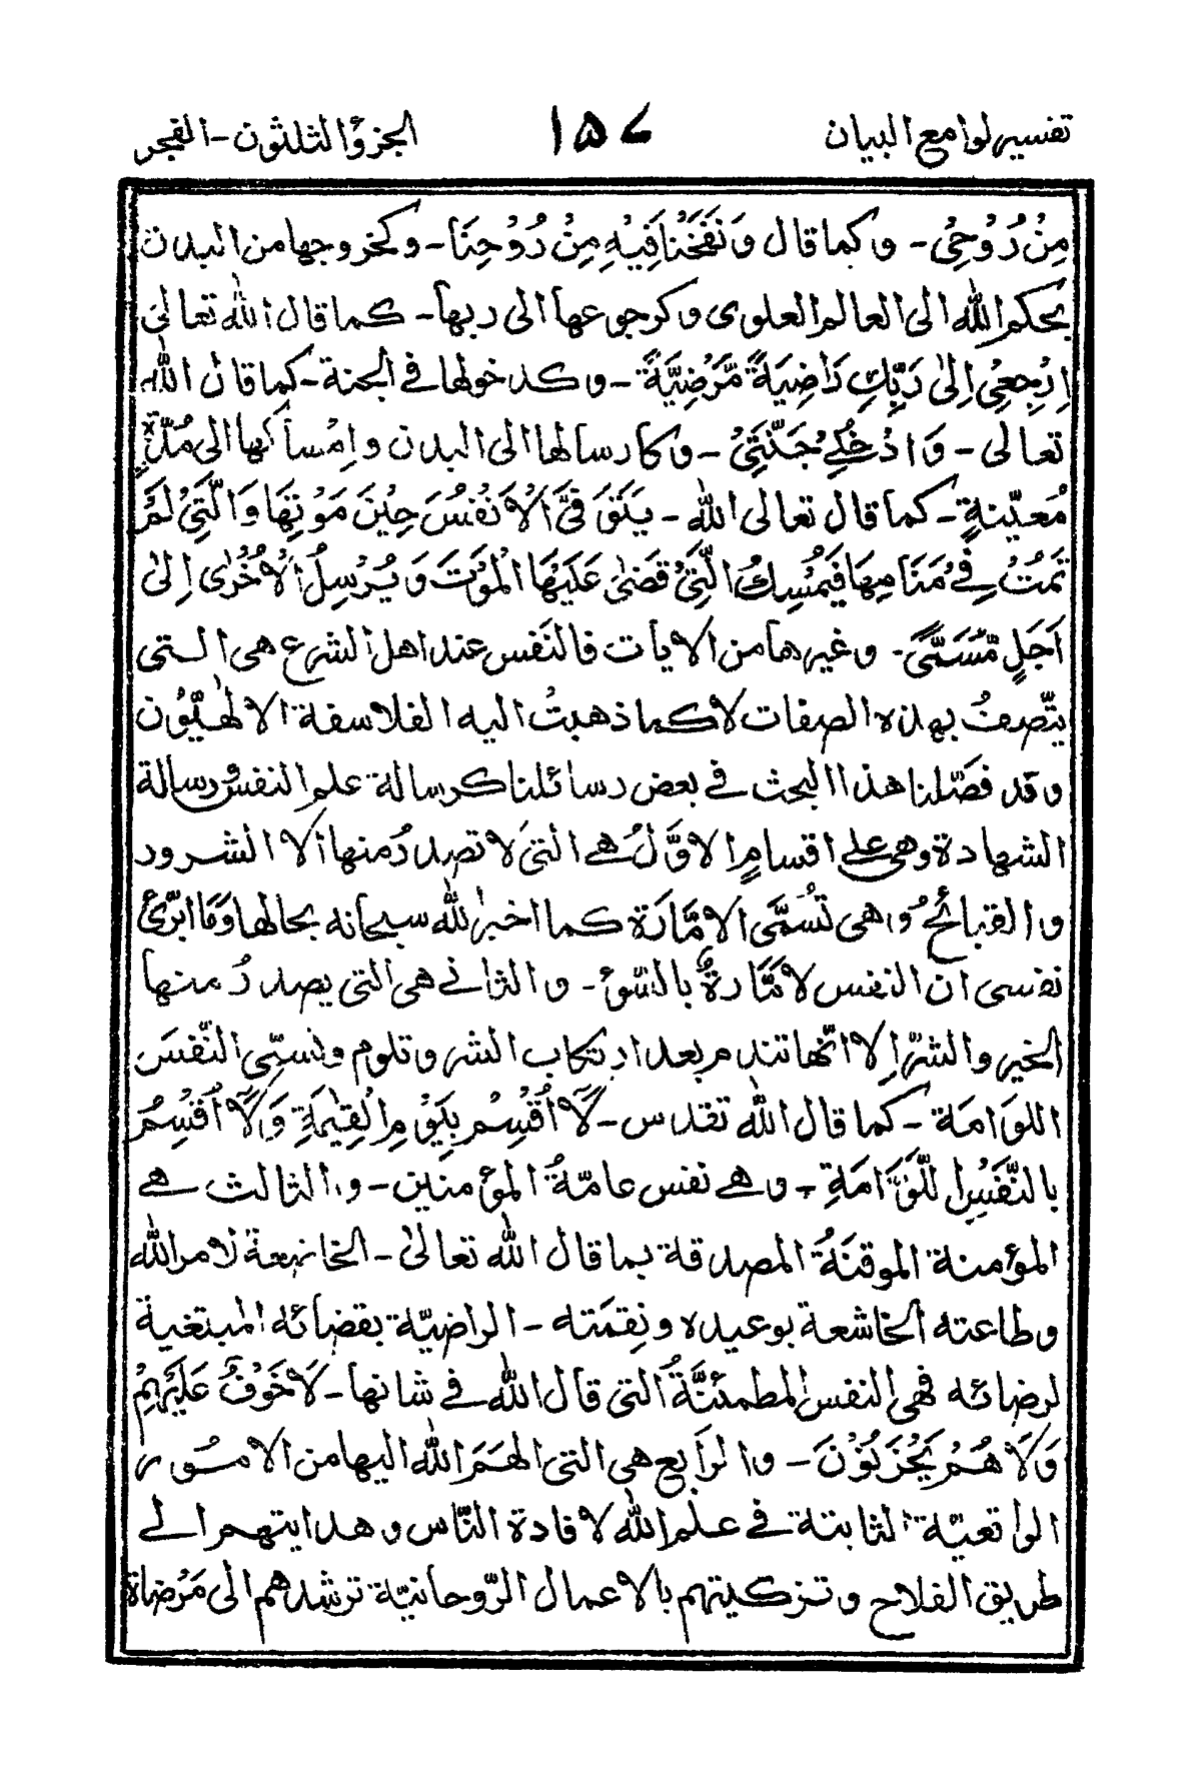 تفسير لوامع البيان ١٥٧ الجزؤ الثلثون - الفجر
مِنْ رُوْحِيْ - وكما قال وَنَفَخْنَا فِيْهِ مِنْ رُوْحِنَا - وكخروجها من البدن
بحكم الله الى العالم العلوى وكرجوعها الى ربها - كما قال الله تعالىٰ
اِرْجِعِيْ اِلىٰ رَبِّكِ رَاضِيَةً مَّرْضِيَّةً - وكدخولها في الجنة - كما قال الله
تعالى - وَادْخُلِيْ جَنَّتِيْ - وكارسالها الى البدن وامْساكها الى مُدّةٍ
مُعيّنةٍ - كما قال تعالى الله - يَتَوَفَّى الْاَنْفُسَ حِيْنَ مَوْتِهَا وَالَّتِيْ لَمْ
تَمُتْ فِيْ مَنَامِهَا فَيُمْسِكُ الَّتِيْ قَضىٰ عَلَيْهَا الْمَوْتَ وَيُرْسِلُ الْاُخْرٰى اِلىٰ
اَجَلٍ مُّسَمًّى - وغيرها من الايات فالنَفس عند اهل الشرع هى التى
يتّصفُ بهذه الصفات لا كما ذهبتْ اليه الفلاسفة الالٰهيّون
وقد فصّلنا هذا البحث في بعض رسائلنا كرسالة علم النفس ورسالة
الشهادة وهى على اقسامٍ الاوّلُ هي التى لا تصدرُ منها الا الشرور
والقبائحُ وهى تُسَمَّى الامَّارَة كما اخبر الله سبحانه بحالها وَمَا ابرّئ
نفسى ان النفس لامَّارةٌ بالسّوْء - والثاني هى التى يصدرُ منها
الخير والشرّ اِلا انّها تندم بعد ارتكاب الشر وتلوم وتسمّى النّفسَ
اللوَامَة - كما قال الله تقدس - لَآ اُقْسِمُ بِيَوْمِ الْقِيٰمَةِ وَلَآ اُقْسِمُ
بِالنَّفْسِ اللَّوَّامَةِ - وهي نفس عامّةُ المؤمنين - والثالث هي
المؤمنة الموقنَةُ المصدقة بما قال الله تعالىٰ - الخاضعة لامر الله
وطاعته الخاشعة بوعيده ونِقمَته - الراضيّة بقضائه المبتغية
لرضائه فهى النفس المطمئنَّةُ التى قال الله في شانها - لَا خَوْفٌ عَلَيْهِمْ
وَلَا هُمْ يَحْزَنُوْنَ - والرابع هى التى الهَمَ الله اليها من الامُور
الواقعيّة الثابتة في علم الله لافادة النّاس وهدايتهم الى
طريق الفلاح وتزكيتهم بالاعمال الرّوحانيّة ترشدهم الى مَرْضاة